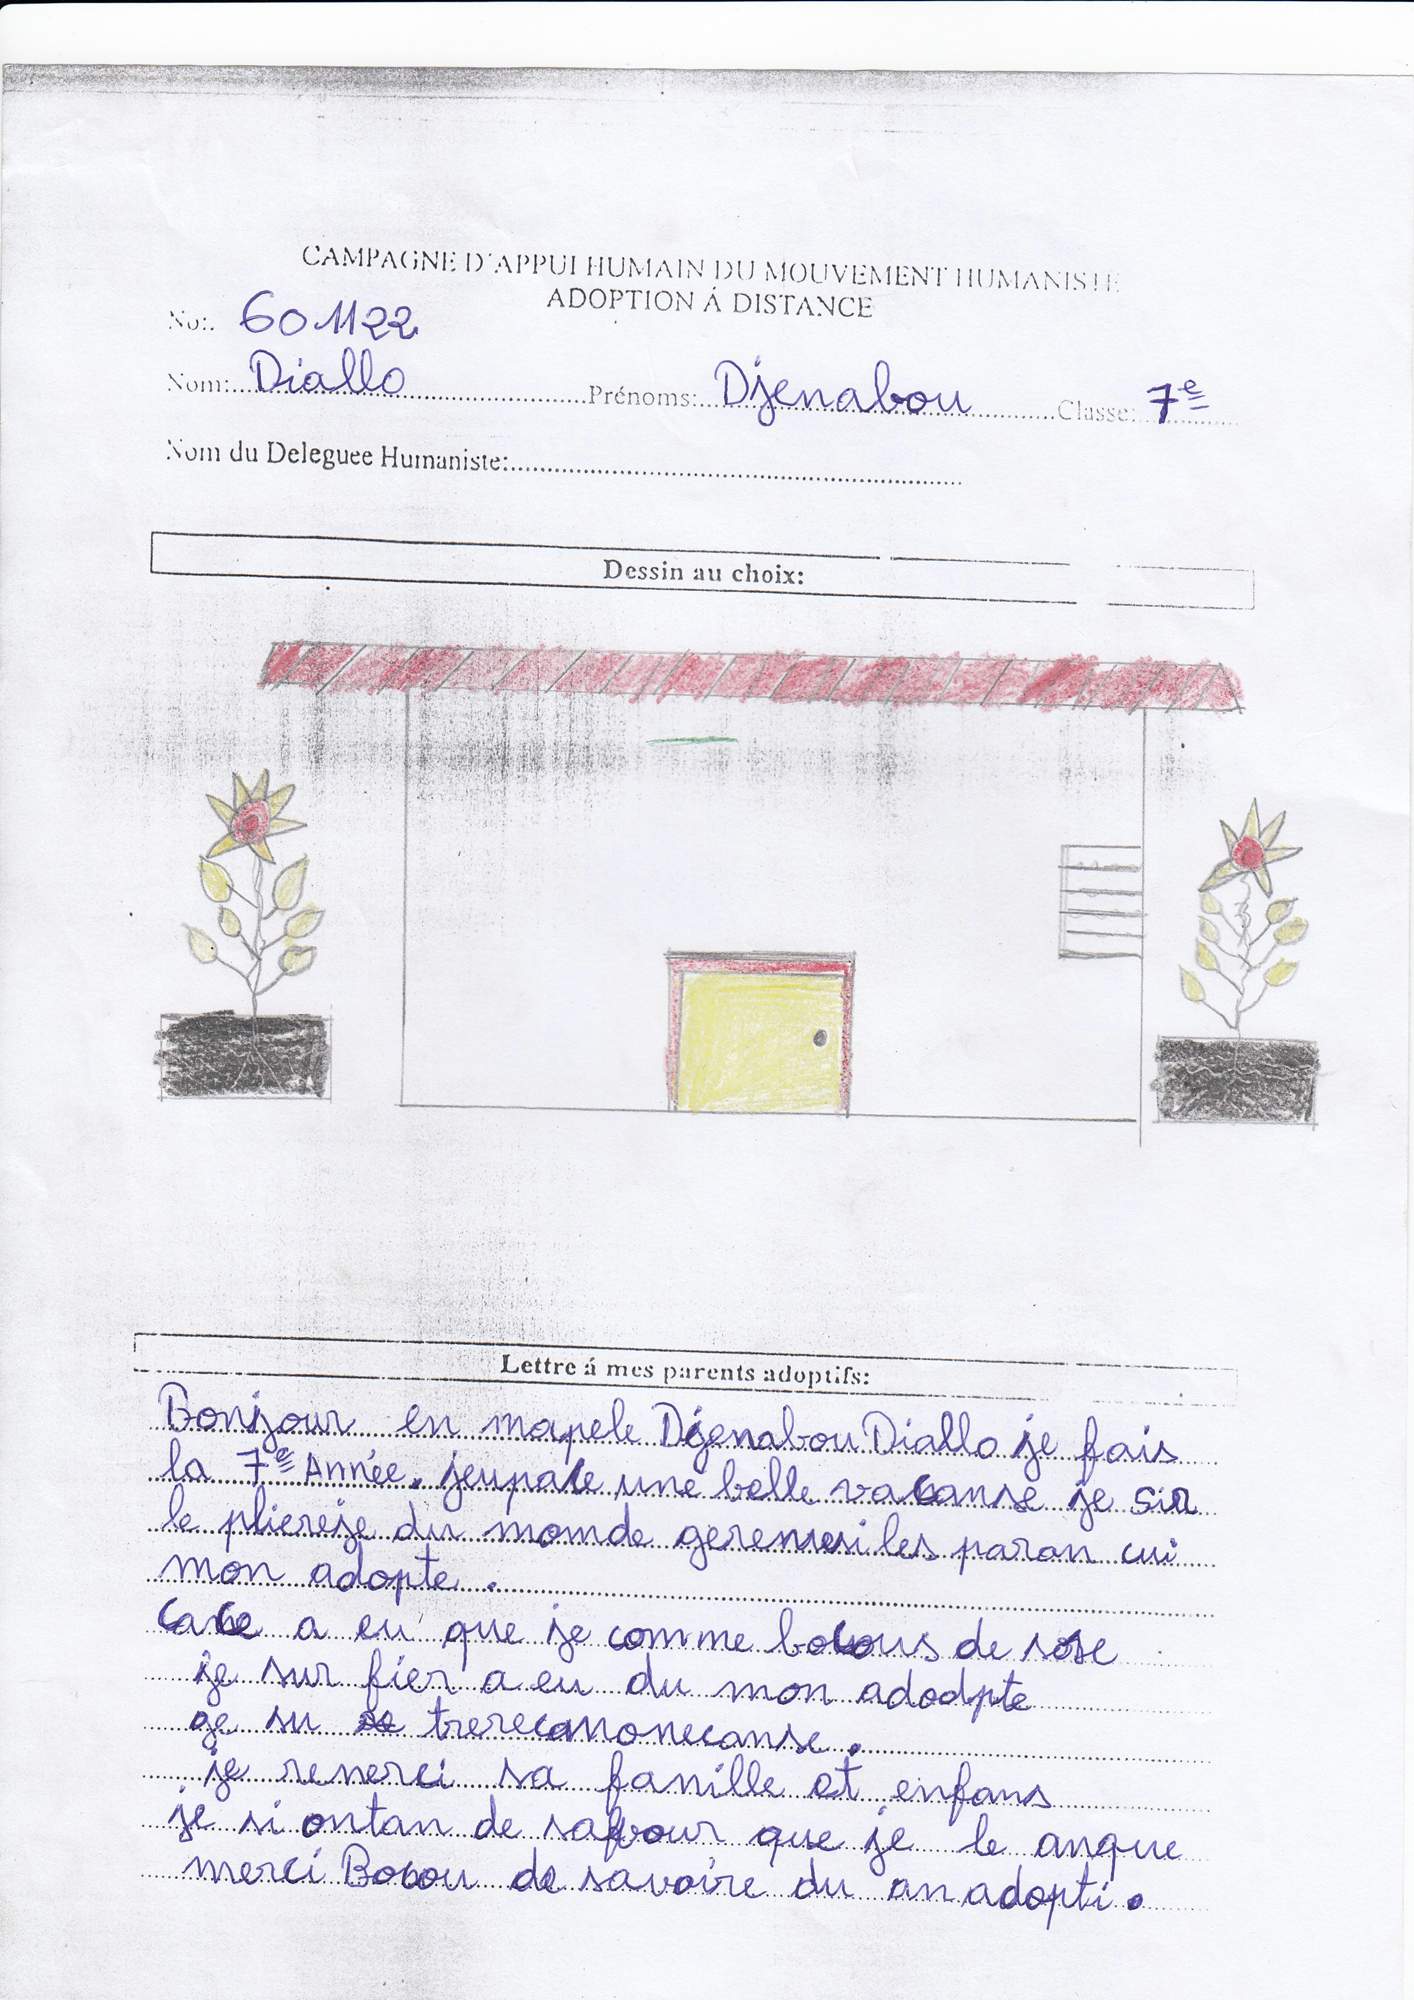 CAMPAGNE D'APPUI HUMAIN DU MOUVEMENT HUMANISTE
ADOPTION Á DISTANCE
No: 601122
Nom: Diallo Prénoms: Djenabou Classe: 7e
Nom du Deleguee Humaniste:
Dessin au choix:
Lettre á mes parents adoptifs:
Bonjour en mapele Djenabou Diallo je fais
la 7e Année. jeupace une belle vacanse je sui
le pliereje du momde geremersi les paran cui
mon adopte.
a eu que je comme bocous de sose
je sur fier a eu du mon adodpte
ge su trerecanonecanse.
je renerci sa famille et enfans
je si ontan de que je le anque
merci Bocou de savoire du an adopti.